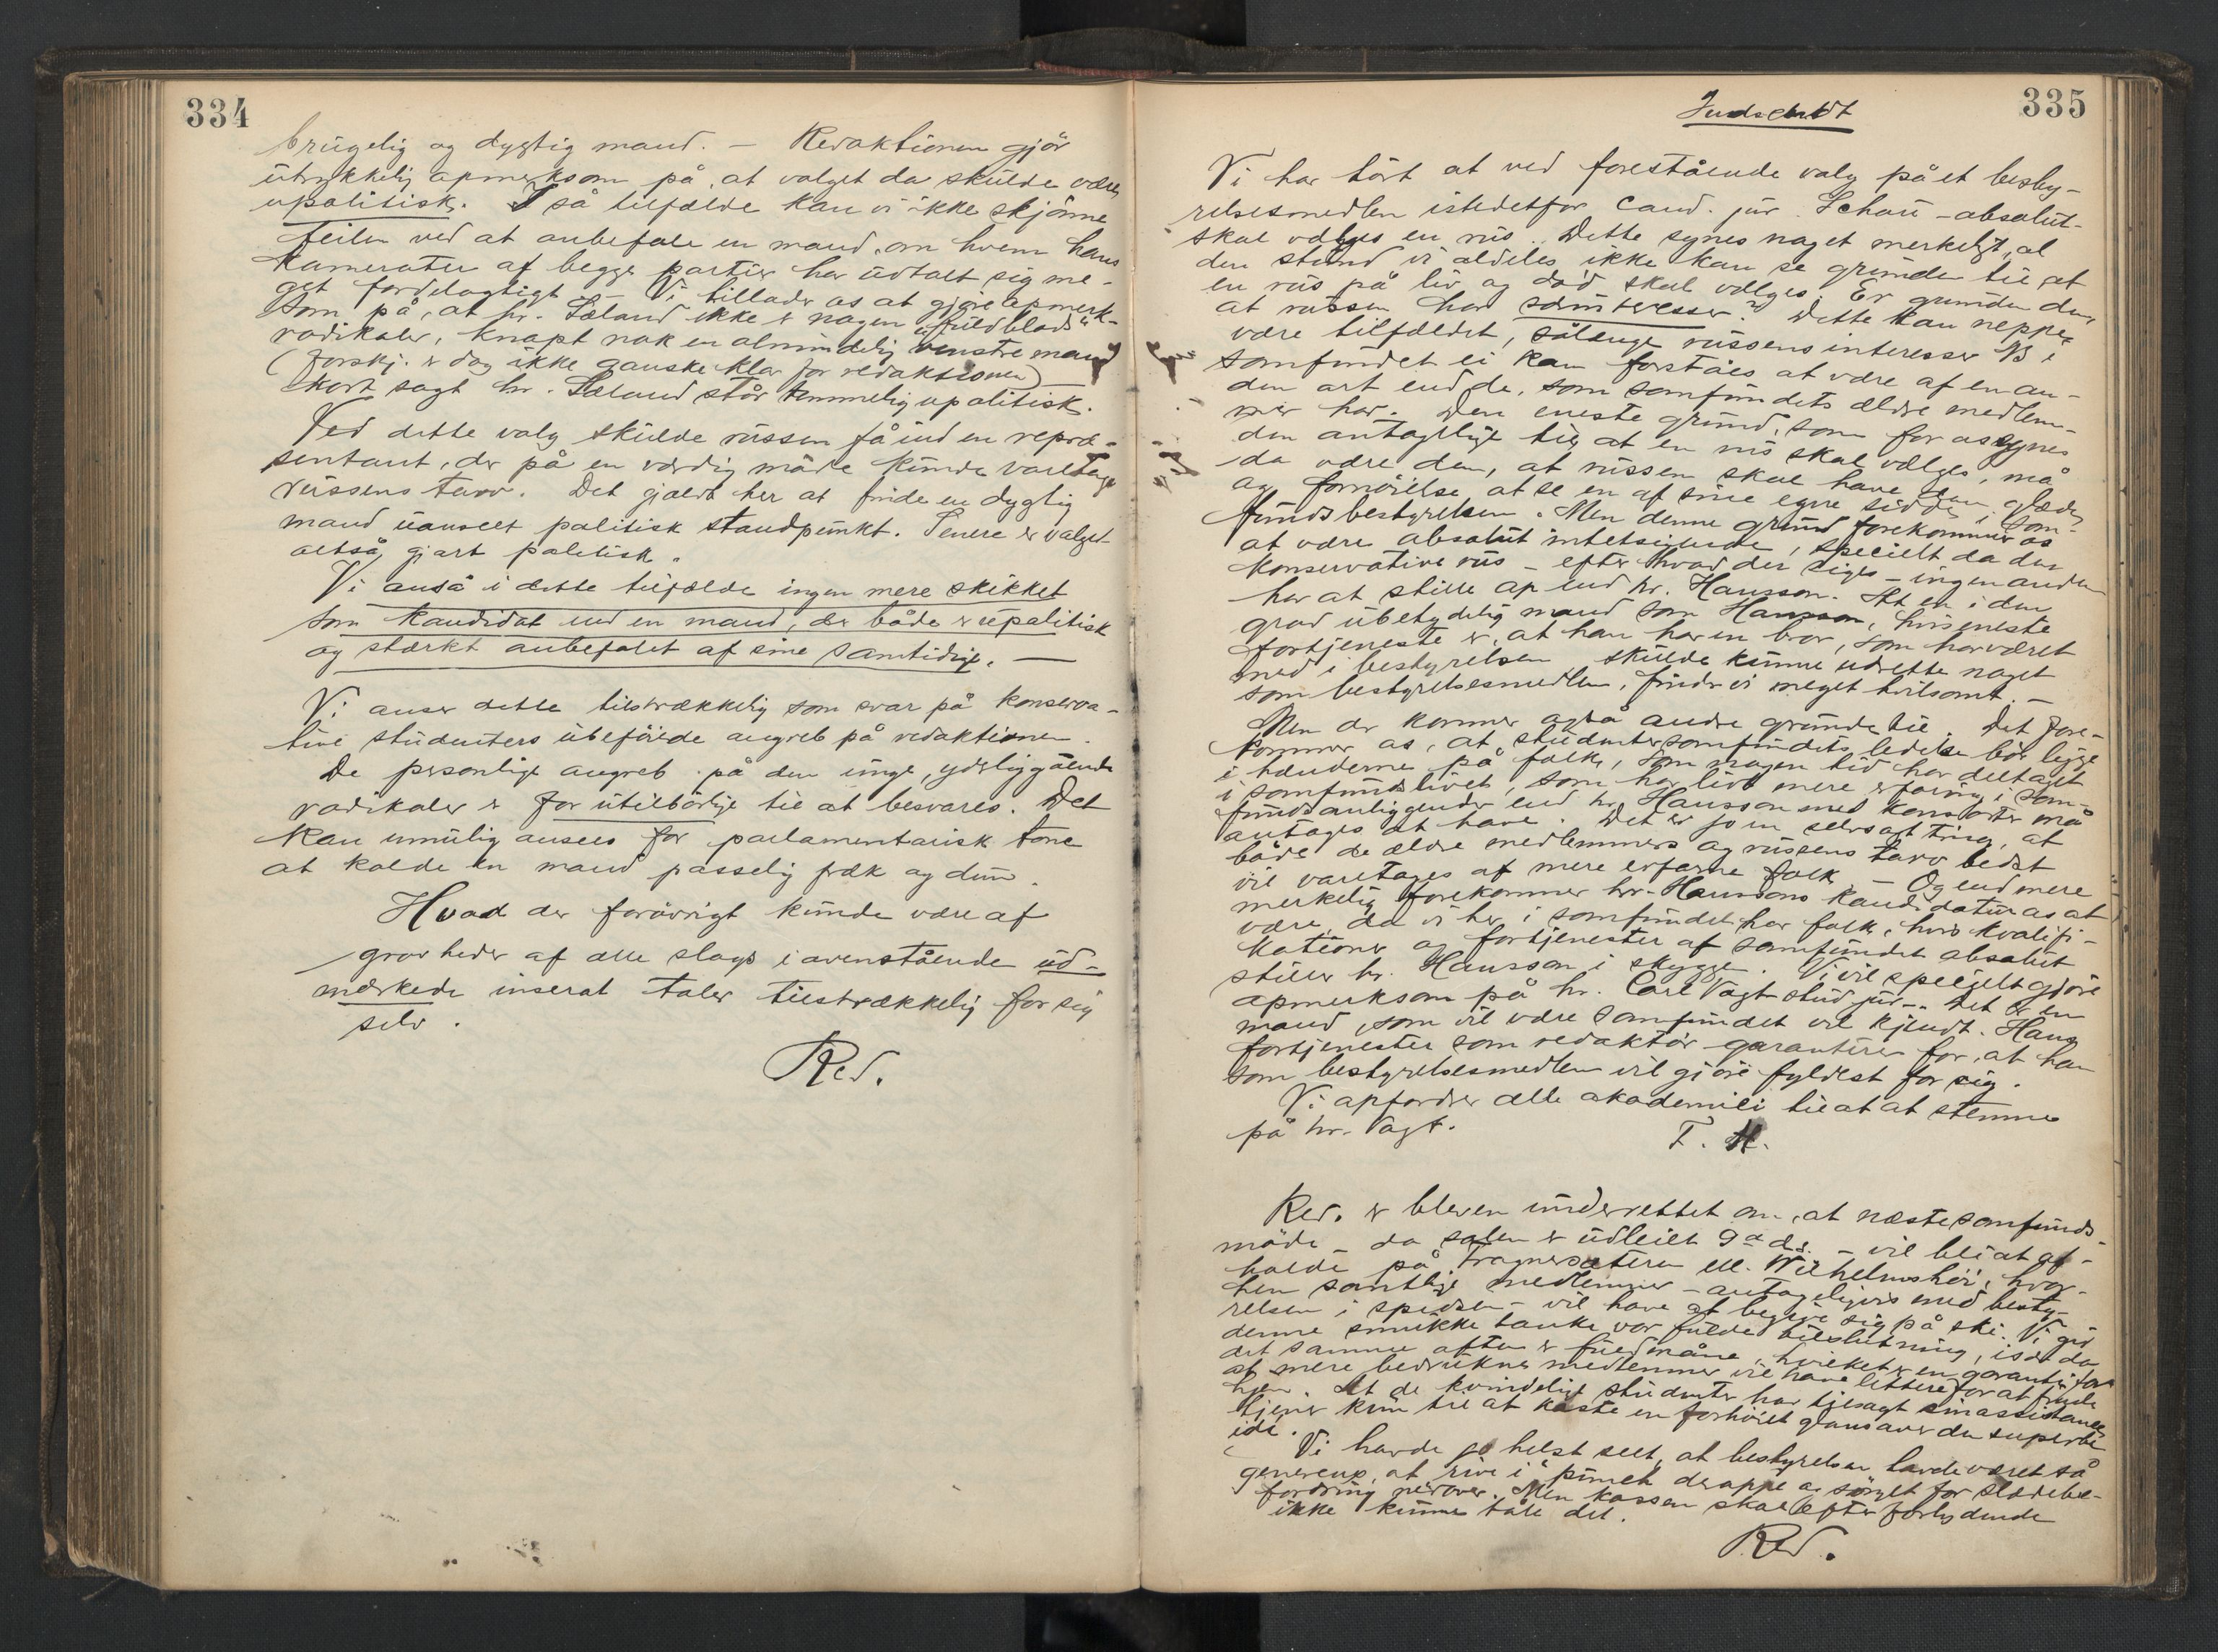 334
brugelig og dygtig mand. – Redaktionen gjör
utrykkelig opmerksom på, at valget da skulde være
upolitisk. I så tilfælde kan vi ikke skjønne
feilen ved at anbefale en mand om hvem hans
kamerater af begge partier har udtalt sig me-
get fordelagtigt – Vi tillader os at gjøre opmerk-
som på, at hr. Sæland ikke er nogen "fuldblods"
radikaler, knapt nok en almindelig venstre mand
(forskj. er dog ikke ganske klar for redaktionen)
kort sagt hr. Sæland står temmelig upolitisk.
Ved dette valg skulde russen få ind en repræ-
sentant, der på en værdig måde kunde varetage
russens tarv. Det gjældt her at finde en dygtig
mand uanseet politisk standpunkt. Senere er valget
altså gjort politisk.
Vi anså i dette tilfælde ingen mere skikket
som kandidat end en mand, der både er upolitisk
og stærkt anbefalet af sine samtidige. –
Vi anser dette tilstrækkelig som svar på konserva-
tive studenters ubeføiede angreb på redaktionen.
De personlige angreb på den unge, yderliggående
radikaler er for utilbørlige til at besvares. Det
kan umulig ansees for parlamentarisk tone
at kalde en mand passelig fræk og dum.
Hvad der forøvrigt kunde være af
grovheder af alle slags i ovenstående ud-
mærkede inserat taler tilstrækkelig for sig
selv.
Red.
335
Indsendt
Vi har hört at ved forestående valg på et besty-
relsesmedlem istedetfor Cand. jur. Schou – absolut-
skal vælges en rus. Dette synes noget merkeligt, al
den stund vi aldeles ikke kan se grunden til, at
en rus på liv og död skal vælges. Er grunden den,
at russen har særinteresser? Dette kan neppe
være tilfældet, sålænge russens interesser i
samfundet ei kan forståes at være af en an-
den art end de, som samfundets ældre medlem-
mer har. Den eneste grund, som for os synes
den antagelige til, at en rus skal vælges, må
da være den, at russen skal have den glæde
og fornöielse at se en af sine egne sidde i sam-
fundsbestyrelsen. Men denne grund forekommer os
at være absolut intetsigende, specielt da den
konservative rus – efter hvad der siges – ingen anden
har at stille op end hr. Hansson. At en i den
grad ubetydelig mand som Hansson, hvis eneste
fortjeneste er, at han har en bror, som har været
med i bestyrelsen skulde kunne udrette noget
som bestyrelsesmedlem, finder vi meget tvilsomt. –
Men der kommer også andre grunde til. Det fore-
kommer os, at studentersamfundets ledelse bör ligge
i hænderne på folk, som nogen tid har deltaget
i samfundslivet, som har lidt mere erfaring i sam-
fundsanliggender end hr. Hansson med konsorter må
antages at have. Det er jo en selvsagt ting, at
både de ældre medlemmers og russens tarv bedst
vil varetages af mere erfarne folk. – Og end mere
merkelig forekommer hr. Hanssons kandidatur os at
være, da vi her i samfundet har folk, hvis kvalifi-
kationer og fortjenester af samfundet absolut
stiller hr. Hansson i skygge. Vi vil specielt gjöre
opmerksom på hr. Carl Vogt stud. jur. – Det er en
mand, som vil være samfundet vel kjendt. Hans
fortjenester som redaktör garanterer for, at han
som bestyrelsesmedlem vil gjöre fyldest for sig.
Vi opfordrer alle akademici til at at stemme
på hr. Vogt.
T. H.
Red. er bleven underrettet om, at næste samfunds-
möde – da salen er udleiet 9de ds. – vil bli at af-
holde på Frognersæteren ell. Wilhelmshöi, hvor-
hen samtlige medlemmer – antageligvis med besty-
relsen i spidsen – vil have at begive sig på ski. Vi gir
denne smukke tanke vor fulde tilslutning, især da
det samme aften er fuldmåne, hvilket er en garanti for
at mere bedrukne medlemmer vil have lettere for at finde
hjem. At de kvindelige studenter har tilsagt sin assistance
tjener kun til at kaste en forhöiet glans over den superbe
idé.
Vi havde jo helst seet, at bestyrelsen havde været så
genereus, at rive i punch deroppe og sörget for slædebe-
fordring nedover. Men kassen skal efter forlydende
ikke kunne tåle det.
Red.